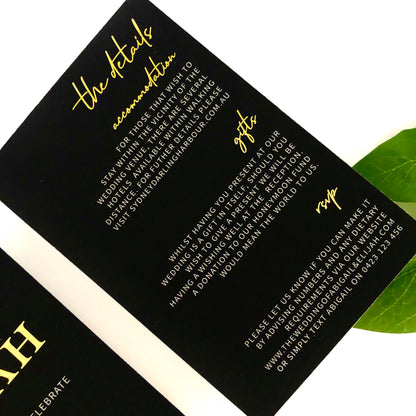 the details
accommodation
FOR THOSE THAT WISH TO
STAY WITHIN THE VICINITY OF THE
WEDDING VENUE, THERE ARE SEVERAL
HOTELS AVAILABLE WITHIN WALKING
DISTANCE. FOR FUTHER DETAILS PLEASE
VISIT SYDNEYDARLINGHARBOUR.COM.AU
gifts
WHILST HAVING YOU PRESENT AT OUR
WEDDING IS A GIFT IN ITSELF, SHOULD YOU
WISH TO GIVE A PRESENT WE WILL BE
HAVING A WISHING WELL AT THE RECEPTION.
A DONATION TO OUR HONEYMOON FUND
WOULD MEAN THE WORLD TO US.
rsvp
PLEASE LET US KNOW IF YOU CAN MAKE IT
BY ADVISING NUMBERS AND ANY DIETARY
REQUIREMENTS VIA OUR WEBSITE
WWW.THEWEDDINGOFABIGAIL&ELIJAH.COM
OR SIMPLY TEXT ABIGAIL ON 0423 123 456
AH
CELEBRATE